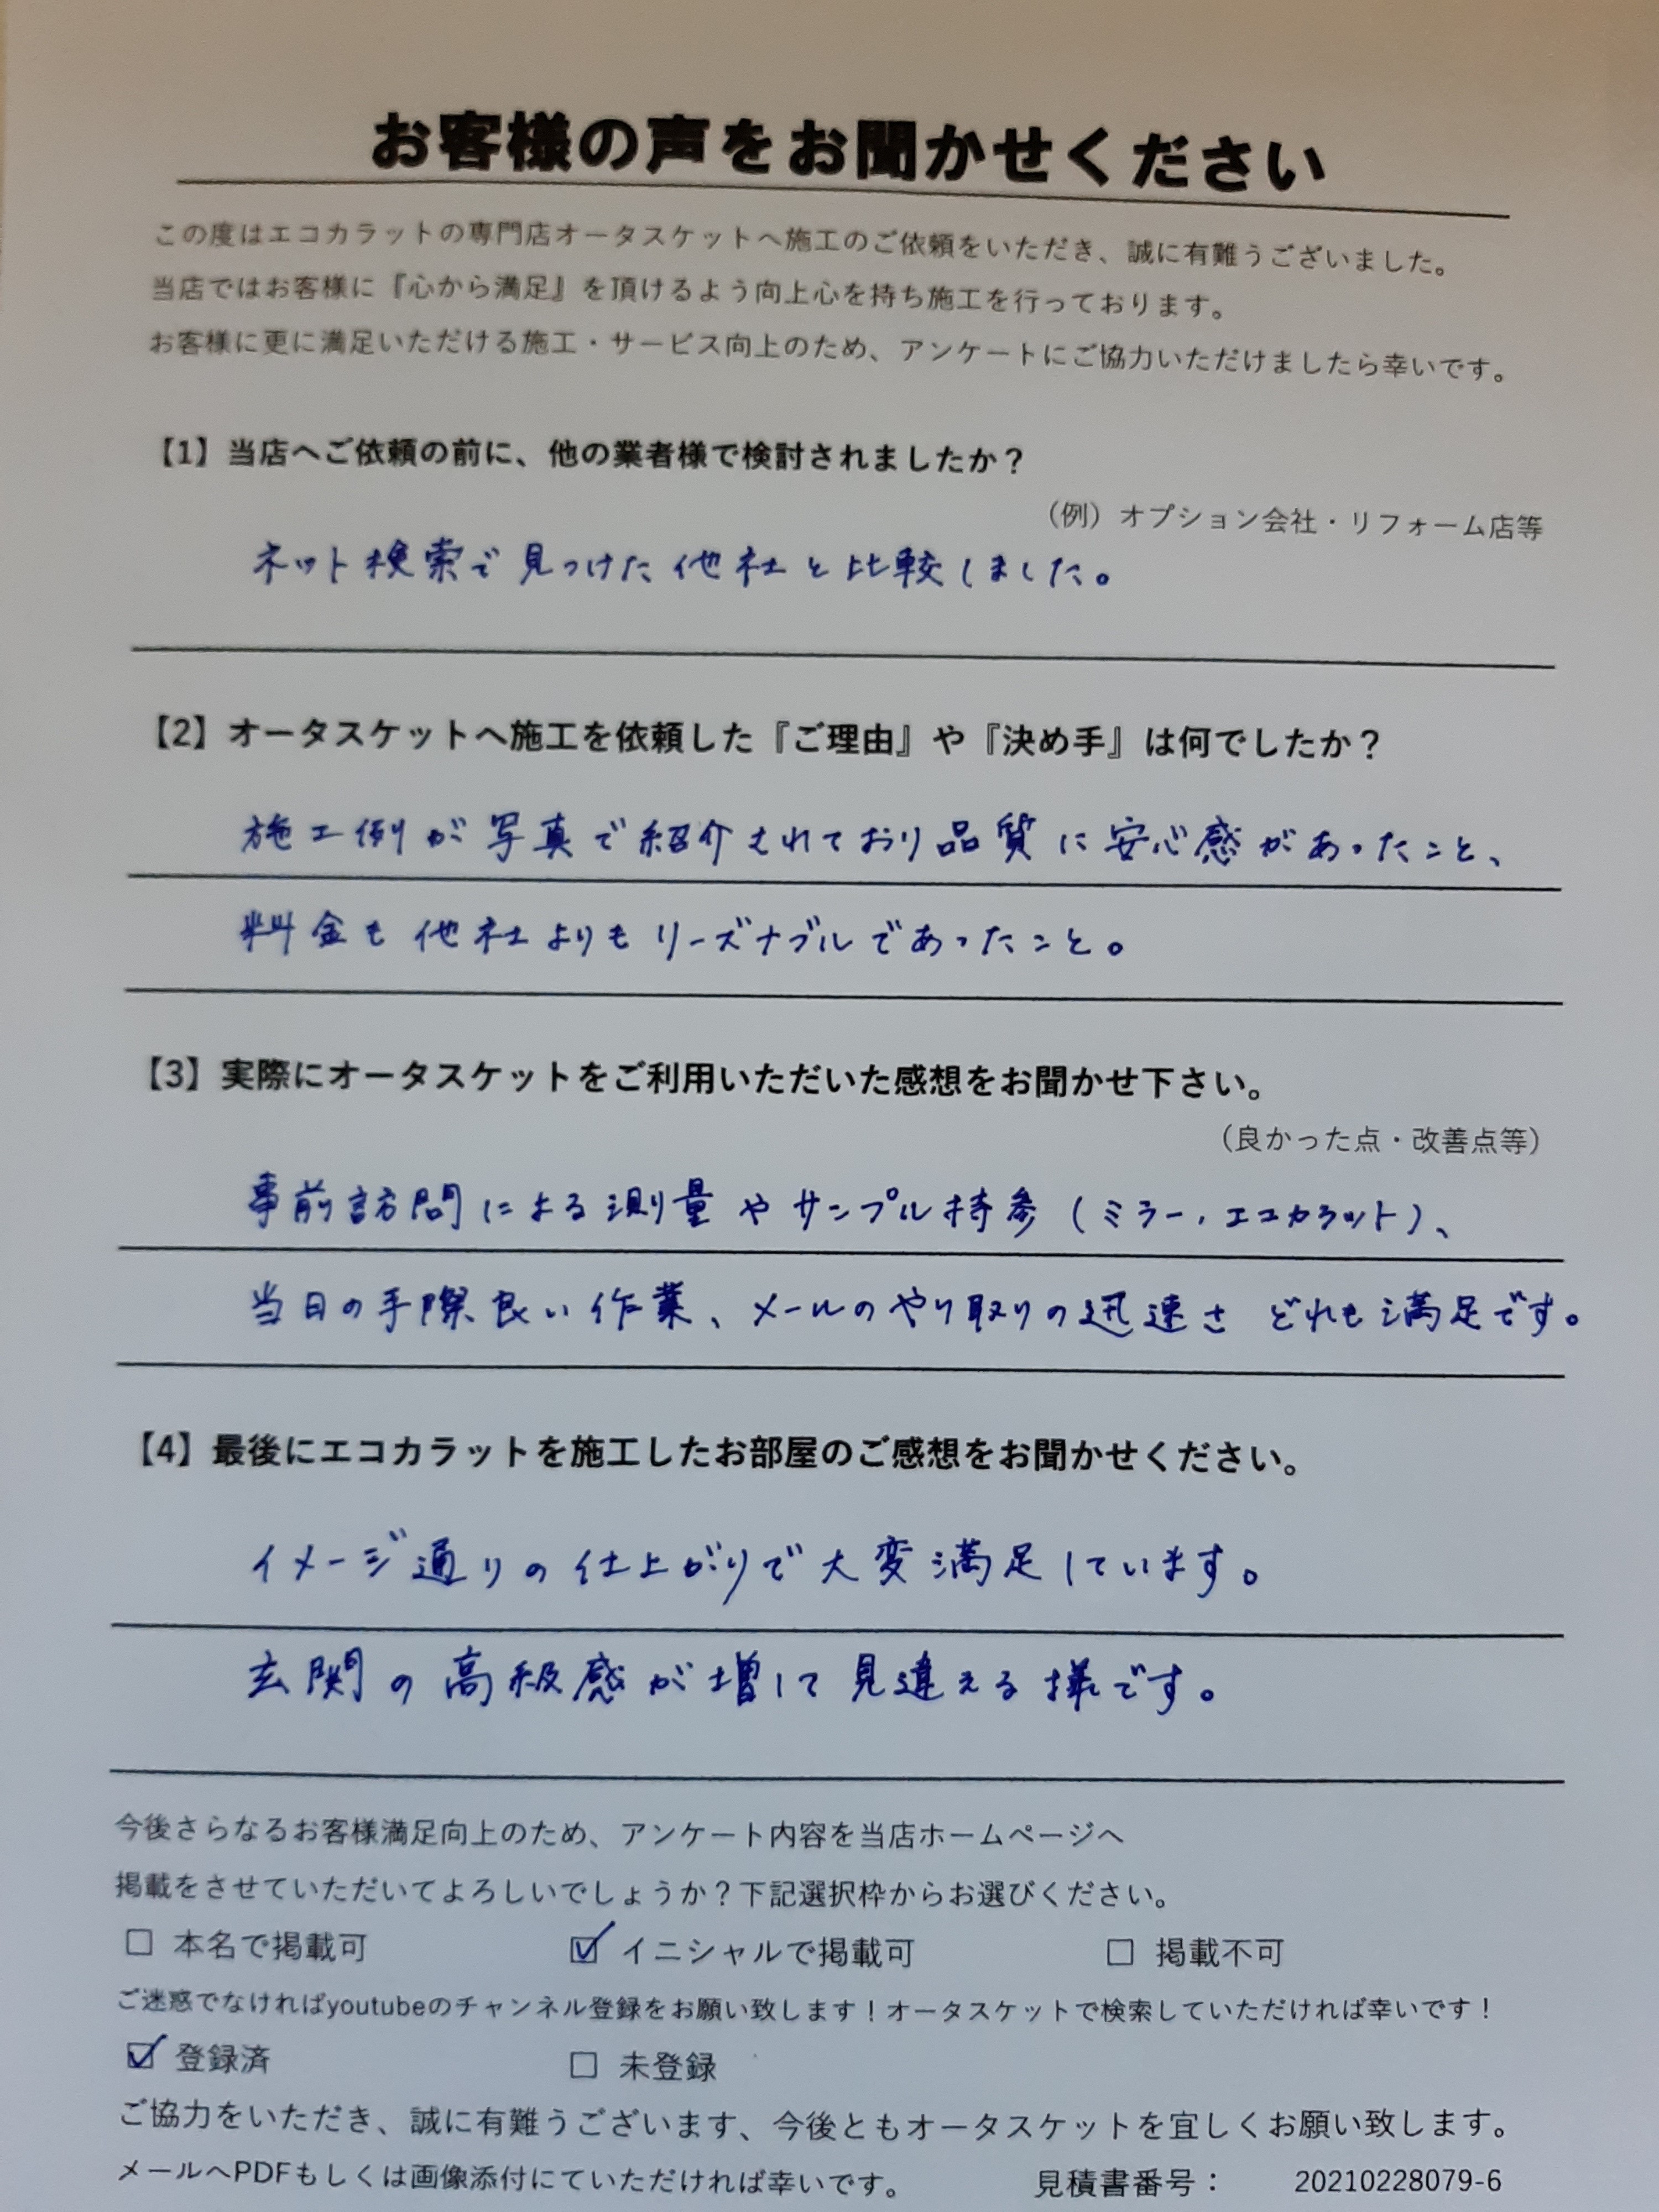 お客様の声をお聞かせください
この度はエコカラットの専門店オータスケットへ施工のご依頼をいただき、誠に有難うございました。
当店ではお客様に『心から満足』を頂けるよう向上心を持ち施工を行っております。
お客様に更に満足いただける施工・サービス向上のため、アンケートにご協力いただけましたら幸いです。
【1】当店へご依頼の前に、他の業者様で検討されましたか？
（例）オプション会社・リフォーム店等
ネット検索で見つけた他社と比較しました。
【2】オータスケットへ施工を依頼した『ご理由』や『決め手』は何でしたか？
施工例が写真で紹介されており品質に安心感があったこと、
料金も他社よりもリーズナブルであったこと。
【3】実際にオータスケットをご利用いただいた感想をお聞かせ下さい。
（良かった点・改善点等）
事前訪問による測量やサンプル持参（ミラー，エコカラット）、
当日の手際良い作業、メールのやり取りの迅速さ どれも満足です。
【4】最後にエコカラットを施工したお部屋のご感想をお聞かせください。
イメージ通りの仕上がりで大変満足しています。
玄関の高級感が増して見違える様です。
今後さらなるお客様満足向上のため、アンケート内容を当店ホームページへ
掲載をさせていただいてよろしいでしょうか？下記選択枠からお選びください。
☐ 本名で掲載可 ☑ イニシャルで掲載可 ☐ 掲載不可
ご迷惑でなければyoutubeのチャンネル登録をお願い致します！オータスケットで検索していただければ幸いです！
☑ 登録済 ☐ 未登録
ご協力をいただき、誠に有難うございます、今後ともオータスケットを宜しくお願い致します。
メールへPDFもしくは画像添付にていただければ幸いです。 見積書番号： 20210228079-6